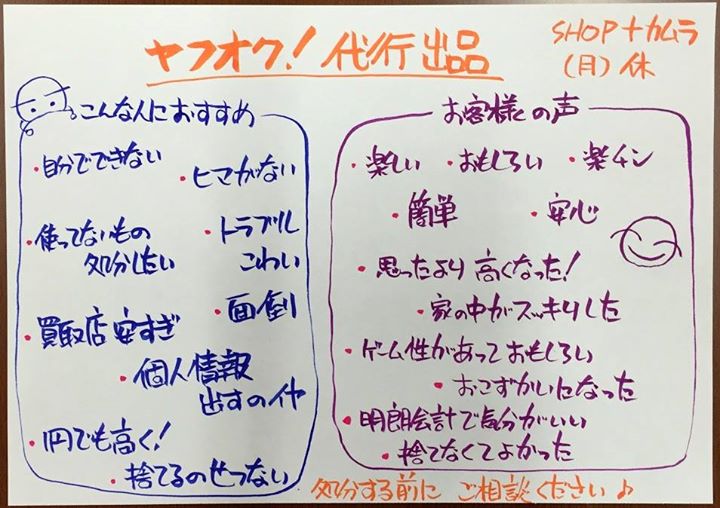 ヤフオク!代行出品
SHOPナカムラ
(月)休
こんな人におすすめ
・自分でできない
・ヒマがない
・使ってないもの
処分したい
・トラブル
こわい
・面倒
・買取店安すぎ
・個人情報
出すのイヤ
・1円でも高く!
・捨てるのせつない
お客様の声
・楽しい
・おもしろい
・楽チン
・簡単
・安心
・思ったより高くなった!
・家の中がスッキリした
・ゲーム性があっておもしろい
・おこずかいになった
・明朗会計で気分がいい
・捨てなくてよかった
処分する前にご相談ください♪